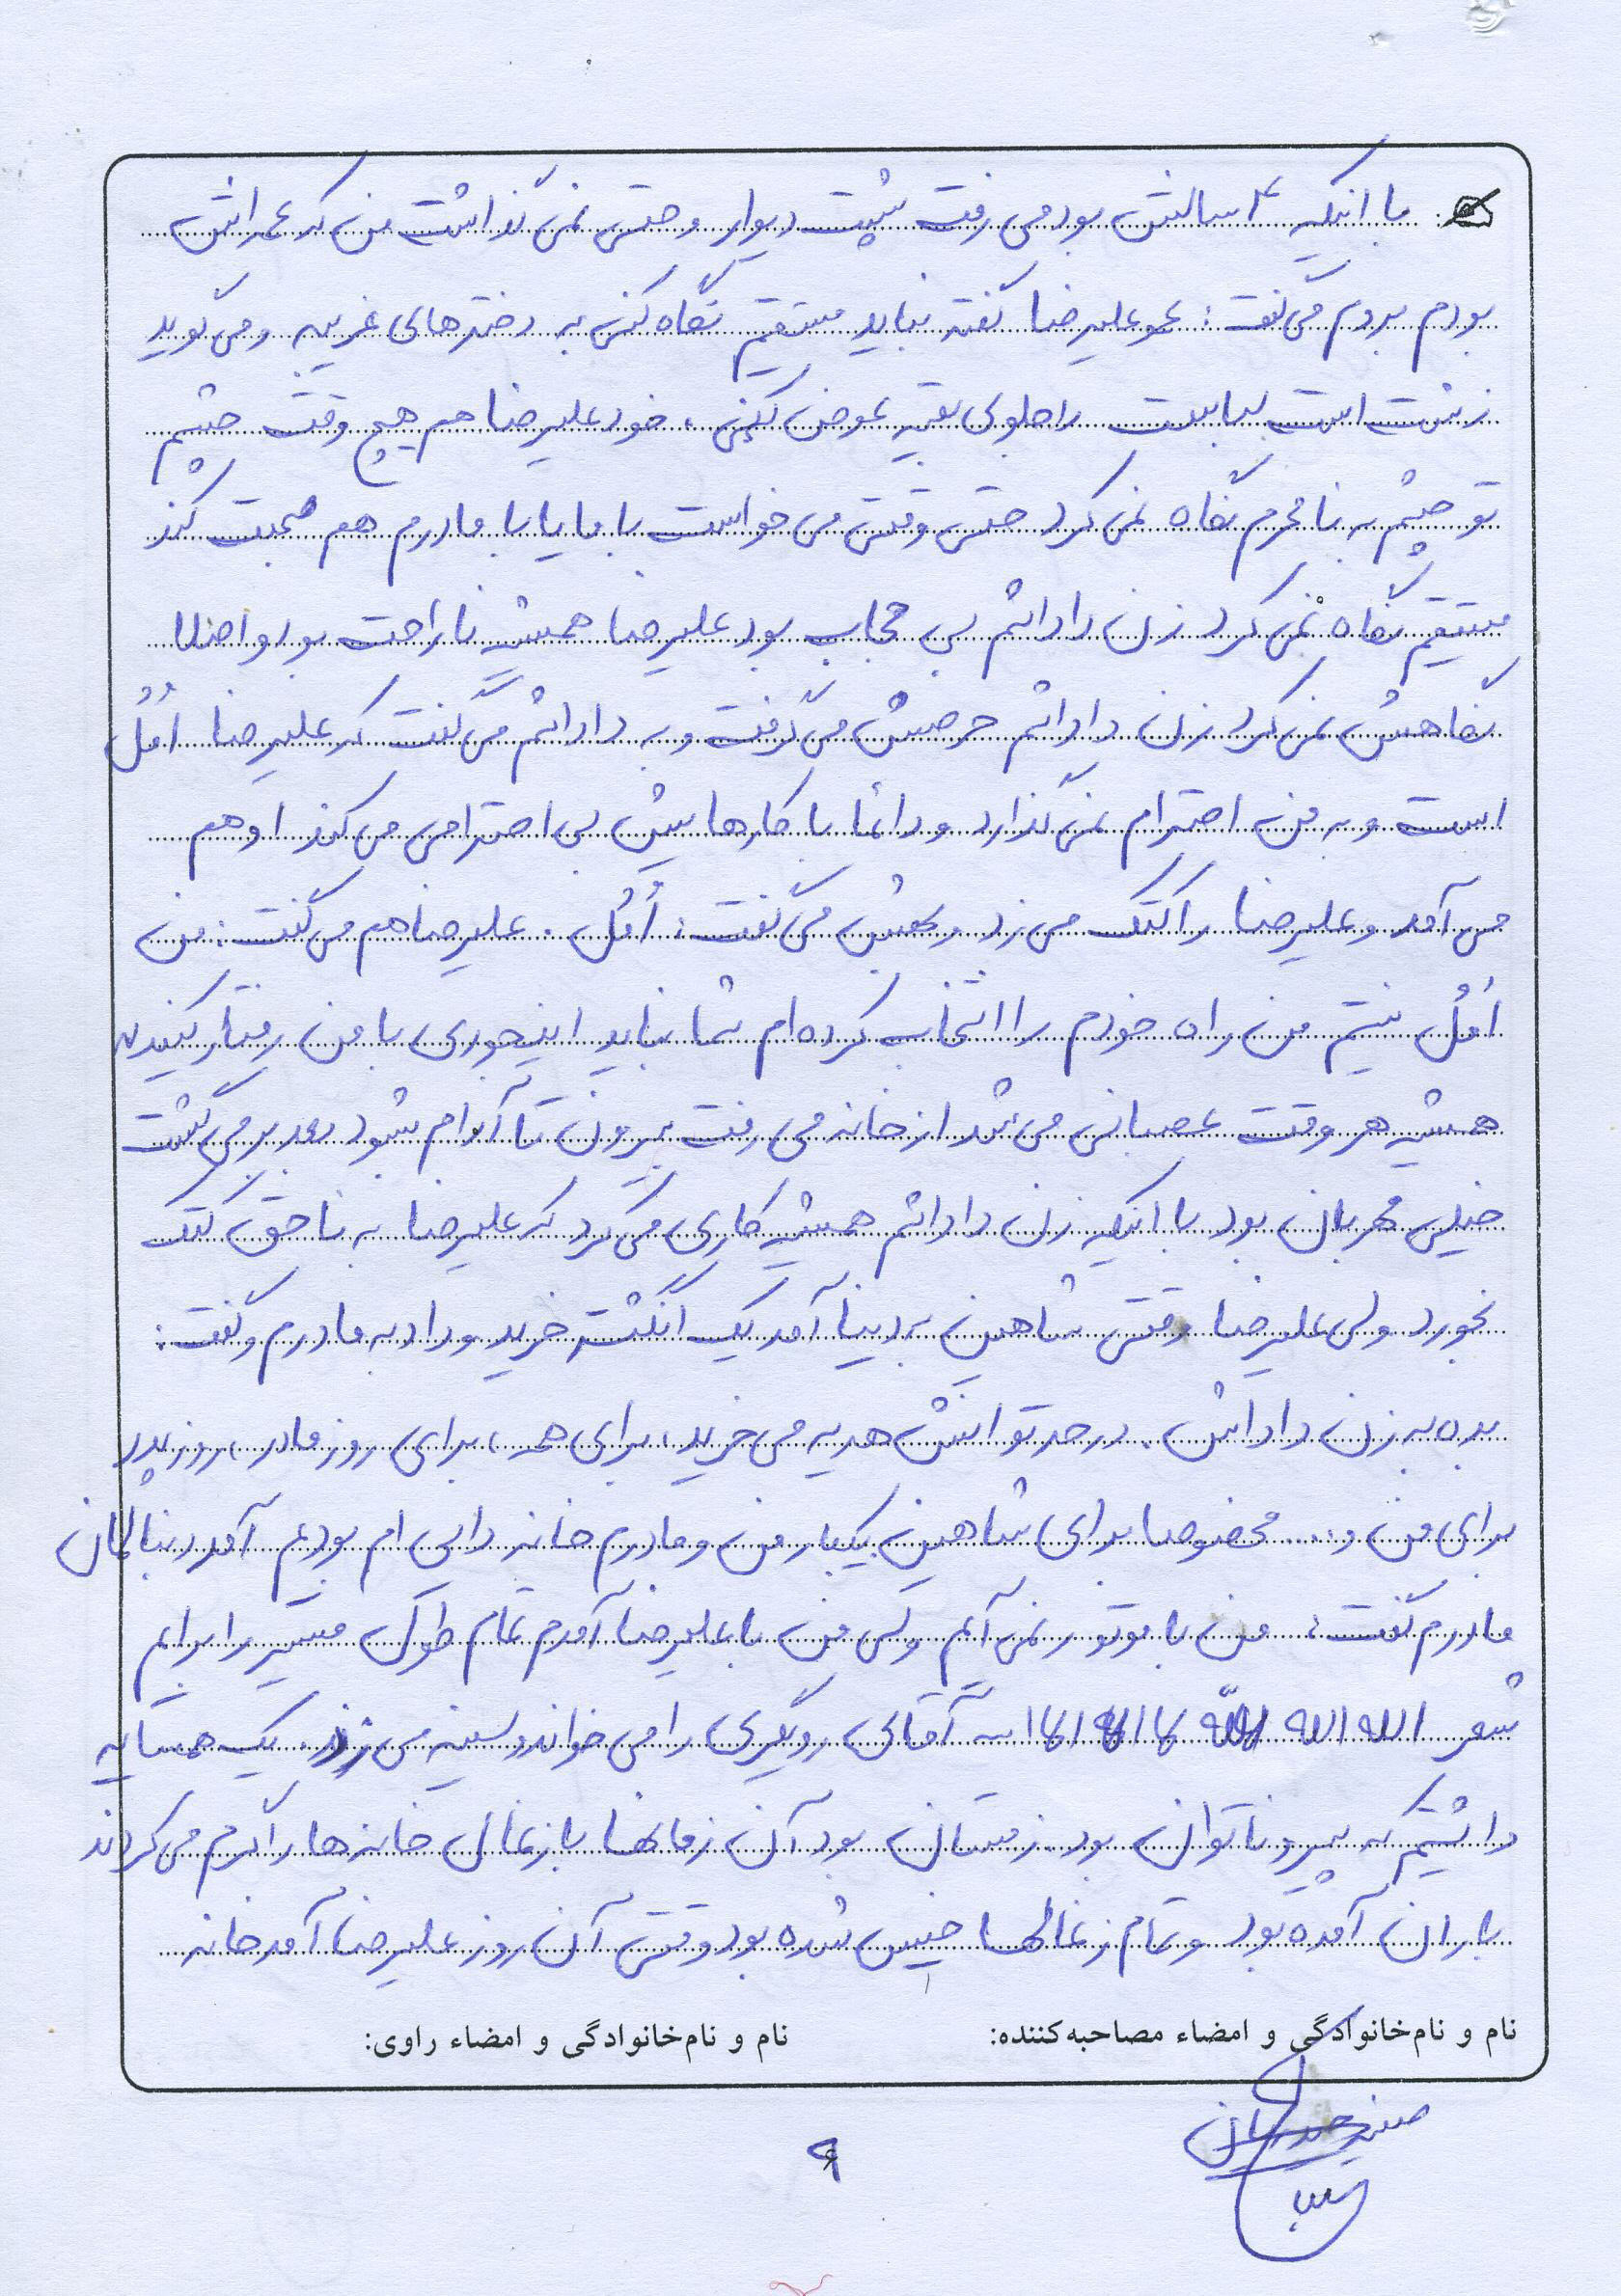 با اینکه ۴ سالش بود می رفت پشت دیوار و حتی نمی گذاشت من که عمه اش
بودم بروم می گفت: عمو علیرضا گفته نباید مستقیم نگاه کنی به دخترهای غریبه و می گوید
زشت است لباست را جلوی بقیه عوض نکنی، خود علیرضا هم هیچ وقت چشم
تو چشم به نامحرم نگاه نمی کرد حتی وقتی می خواست با ما یا با مادرم هم صحبت کند
مستقیم نگاه نمی کرد زن داداشم بی حجاب بود علیرضا همیشه ناراحت بود و اصلا
نگاهش نمی کرد زن داداشم حرصش می گرفت و به داداشم می گفت که علیرضا اُمُل
است و به من احترام نمی گذارد و دائما با کارهایش بی احترامی می کند او هم
می آمد و علیرضا را کتک می زد و بهش می گفت: اُمُل. علیرضا هم می گفت: من
اُمُل نیستم من راه خودم را انتخاب کرده ام شما نباید اینجوری با من رفتار کنید
همیشه هر وقت عصبانی می شد از خانه می رفت بیرون تا آرام شود بعد بر می گشت
خیلی مهربان بود با اینکه زن داداشم همیشه کاری می کرد که علیرضا به ناحق کتک
بخورد ولی علیرضا وقتی شاهین به دنیا آمد یک انگشتر خرید و داد به مادرم و گفت:
بده به زن داداش. در حد توانش هدیه می خرید، برای همه، برای روز مادر، روز پدر
برای من و .... مخصوصا برای شاهین یکبار من و مادرم خانه دایی ام بودیم آمد دنبالمان
مادرم گفت: من با موتور نمی آیم ولی من با علیرضا آمدم تمام طول مسیر را برایم
شعر الله الله الله لا اله الا الله آقای رویگری را می خواند و سینه می زد. یک همسایه
داشتیم که پیر و ناتوان بود. زمستان بود آن زمانها با زغال خانه ها را گرم می کردند
باران آمده بود و تمام زغالها خیس شده بود وقتی آن روز علیرضا آمد خانه
نام و نام‌خانوادگی و امضاء مصاحبه‌کننده:
نام و نام‌خانوادگی و امضاء راوی:
۹